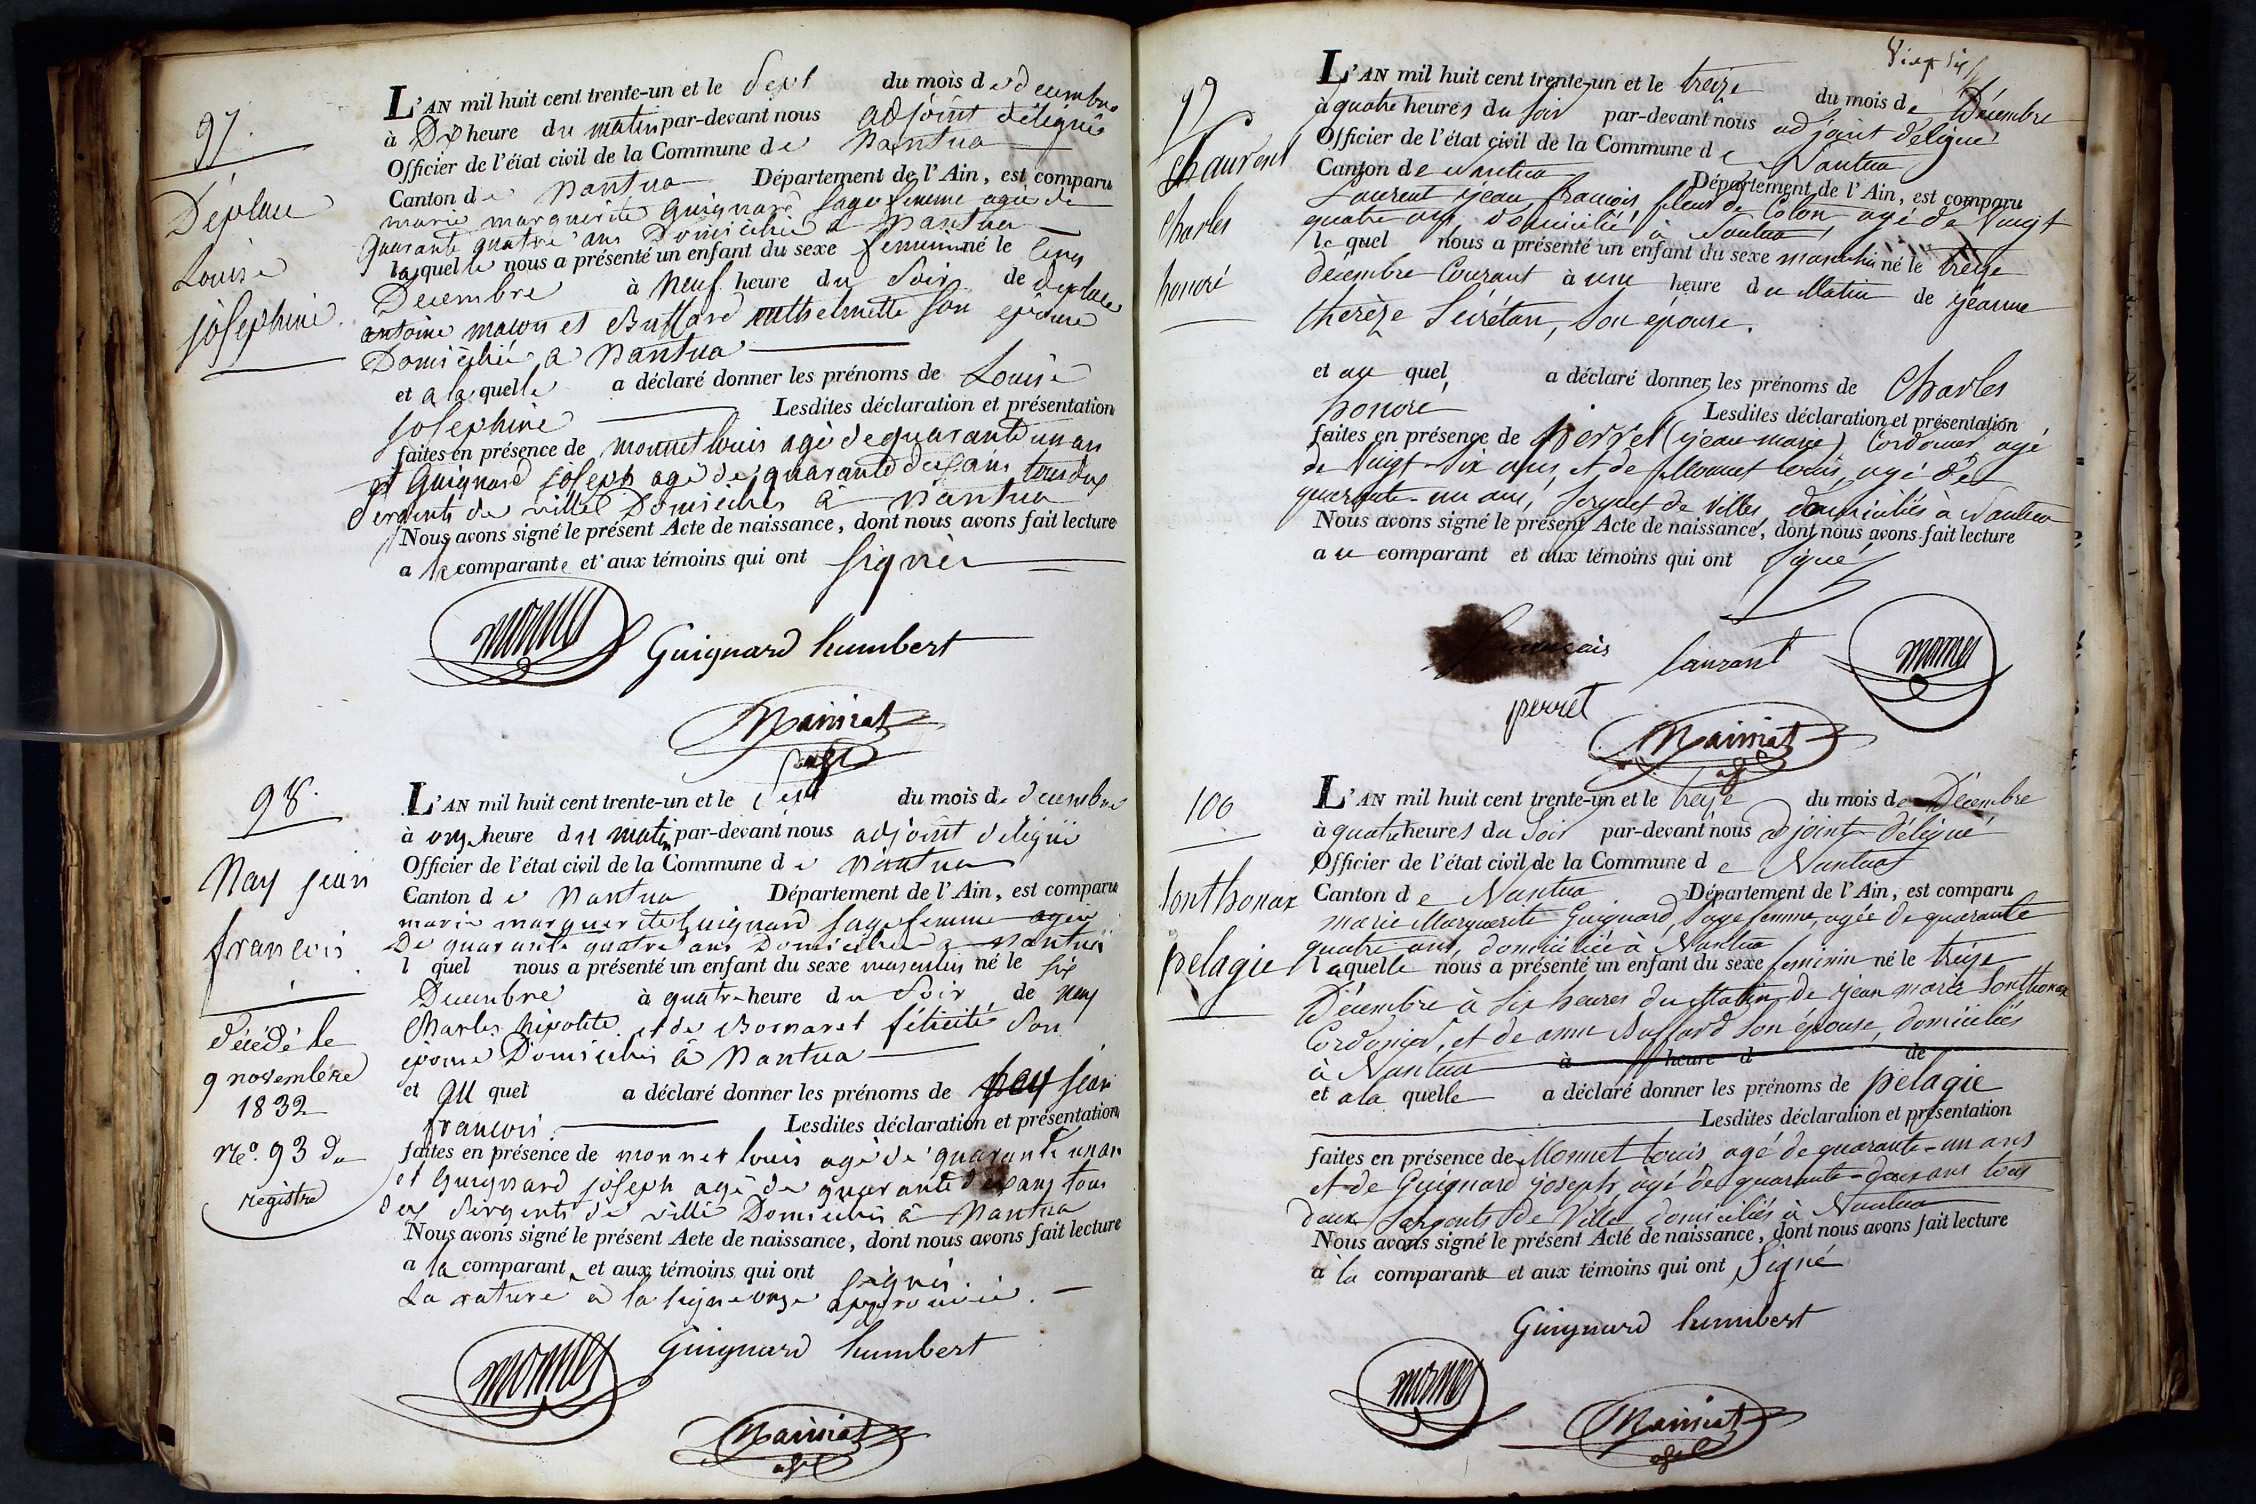 97.
Déplace
Louise
josephine
L'AN mil huit cent trente-un et le Sept du mois de decembre
à Dix heure du matin par-devant nous adjoint délégué
Officier de l'état civil de la Commune de Nantua
Canton de Nantua Département de l'Ain, est comparu
marie marguerite Guignard Sage femme agée de
Quarante quatre ans Domiciliée a Nantua
laquelle nous a présenté un enfant du sexe feminin né le Cinq
Decembre à Neuf heure du Soir de deplace
antoine maçon et Buffard son épouse
Domiciliés a Nantua
et a laquelle a déclaré donner les prénoms de Louise
Josephine Lesdites déclaration et présentation
faites en présence de monnet louis agé de quarante un an
et Guignard joseph agé de quarante deux ans tous deux
Sergents de ville Domiciliés à Nantua
Nous avons signé le présent Acte de naissance, dont nous avons fait lecture
a la comparante et aux témoins qui ont Signés
monnet
Guignard humbert
Mainiat
adjt
98.
Nay jean
francois
décédé le
9 novembre
1832
No. 93 du
registre
L'AN mil huit cent trente-un et le Sept du mois de decembre
à onze heure du matin par-devant nous adjoint délégué
Officier de l'état civil de la Commune de Nantua
Canton de Nantua Département de l'Ain, est comparu
marie marguerite Guignard Sage femme agée
De quarante quatre ans Domiciliée a Nantua
l quel nous a présenté un enfant du sexe masculin né le six
Decembre à quatre heure du Soir de Nay
Charles hipolite et de Bornaret félicité Son
épouse Domiciliés à Nantua
et au quel a déclaré donner les prénoms de Nay Jean
francois. Lesdites déclaration et présentation
faites en présence de monnet louis agé de quarante un an
et Guignard joseph agé de quarante deux ans tous
deux Sergents de ville Domiciliés à Nantua
Nous avons signé le présent Acte de naissance, dont nous avons fait lecture
a la comparant et aux témoins qui ont signés.
La rature a la ligne onze approuvée.
monnet
Guignard humbert
Mainiat
adjt
99
Laurent
Charles
honoré
L'AN mil huit cent trente-un et le treize du mois de Décembre
à quatre heures du Soir par-devant nous adjoint délégué
Officier de l'état civil de la Commune de Nantua
Canton de Nantua Département de l'Ain, est comparu
Laurent jean françois, fileur de Coton agé de Vingt
quatre ans, domicilié à Nantua,
lequel nous a présenté un enfant du sexe masculin né le treize
décembre Courant à une heure du Matin de jeanne
thérèze Secrétan, Son épouse.
et au quel a déclaré donner les prénoms de Charles
honoré Lesdites déclaration et présentation
faites en présence de perret (jean marie) Cordonier, agé
de Vingt-Six ans, et de Monnet louis, agé de
quarante-un ans, Sergent de Ville, domiciliés à Nantua
Nous avons signé le présent Acte de naissance, dont nous avons fait lecture
au comparant et aux témoins qui ont Signé
françois laurant
monnet
perret
Mainiat
adjt
100
Sonthonax
pelagie
L'AN mil huit cent trente-un et le treize du mois de Décembre
à quatre heures du Soir par-devant nous adjoint délégué
Officier de l'état civil de la Commune de Nantua
Canton de Nantua Département de l'Ain, est comparu
Marie Marguerite Guignard, Sage femme, agée de quarante
quatre ans, domiciliée à Nantua
laquelle nous a présenté un enfant du sexe feminin né le treize
Décembre à Six heures du Matin de jean marie Sonthonax
Cordonier, et de anne Buffard Son épouse, domiciliés
à Nantua à heure d de
et a la quelle a déclaré donner les prénoms de pelagie
Lesdites déclaration et présentation
faites en présence de Monnet Louis, agé de quarante-un ans
et de Guignard joseph agé de quarante-deux ans tous
deux Sergents de Ville, domiciliés à Nantua
Nous avons signé le présent Acte de naissance, dont nous avons fait lecture
à la comparante et aux témoins qui ont Signé
Guignard humbert
monnet
Mainiat
adjt